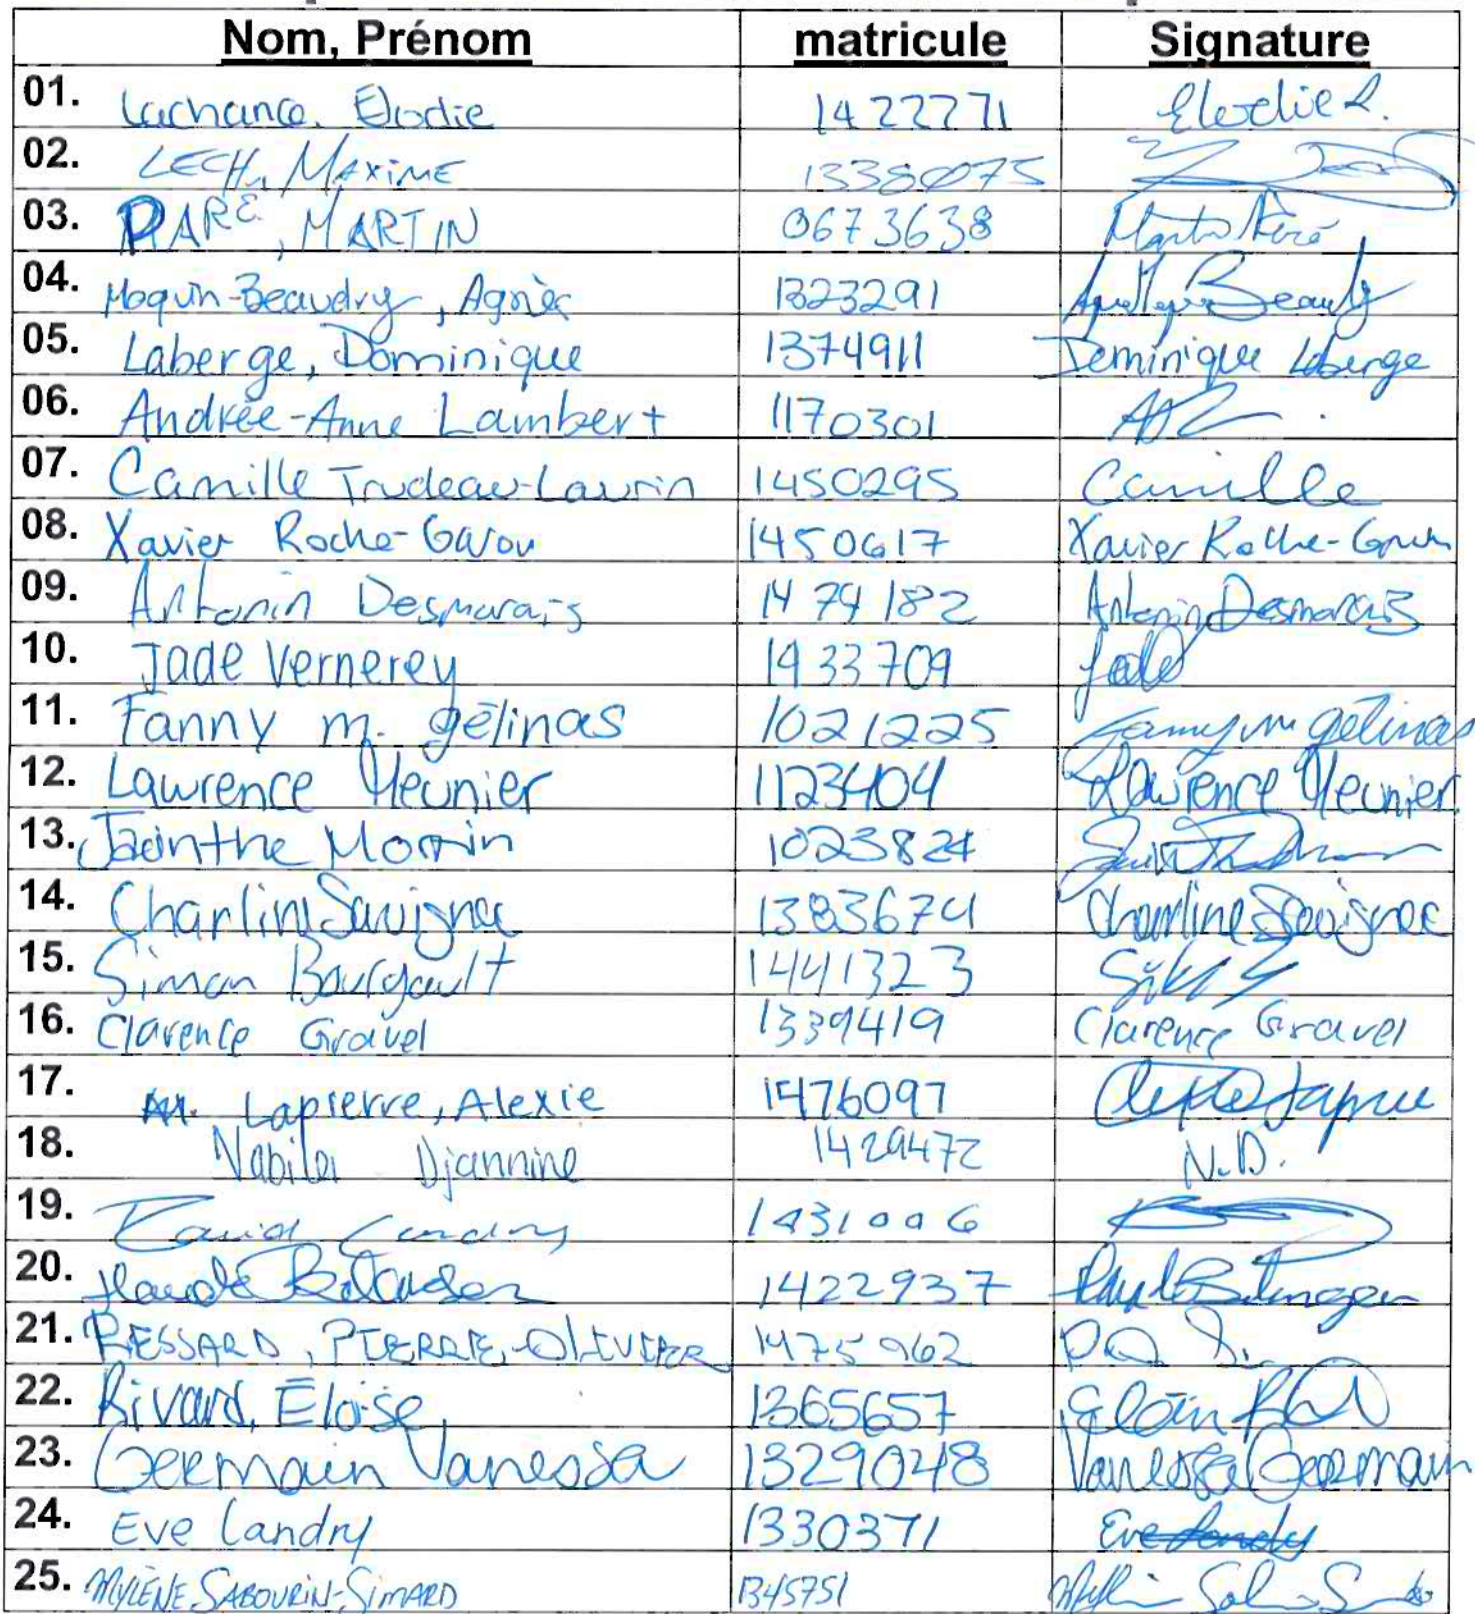 Nom, Prénom matricule Signature
01. Lachance, Élodie 1422271 Elodie L.
02. LECH, MAXIME 1338075
03. PARÉ, MARTIN 0673638 Martin Paré
04. Moquin-Beaudry, Agnès 1323291 Beaudry
05. Laberge, Dominique 1374911 Dominique Laberge
06. Andrée-Anne Lambert 1170301
07. Camille Trudeau-Laurin 1450295 Camille
08. Xavier Roche- 1450617 Xavier
09. Antonin Desmarais 1474182 Antonin Desmarais
10. Jade Vernerey 1433709 Jade
11. Fanny m. gélinas 1021225 Fanny m gélinas
12. Lawrence Meunier 1123404 Lawrence Meunier
13. Jacinthe Morrin 1023824
14. Charline Savignac 1383674 Charline Savignac
15. Simon Bourgault 1441323
16. Clarence Gravel 1339419 Clarence Gravel
17. Lapierre, Alexie 1476097 Alexie Lapierre
18. Nabila Djannine 1429472 N.D.
19. David Landry
20. 1422937
21. BESSARD, PIERRE-OLIVIER 1475962 P.O.
22. Rivard, Éloïse 1365657
23. Germain Vanessa 1329048 Vanessa Germain
24. Eve Landry 1330371 Eve Landry
25. MYLÈNE SABOURIN-SIMARD 1345751